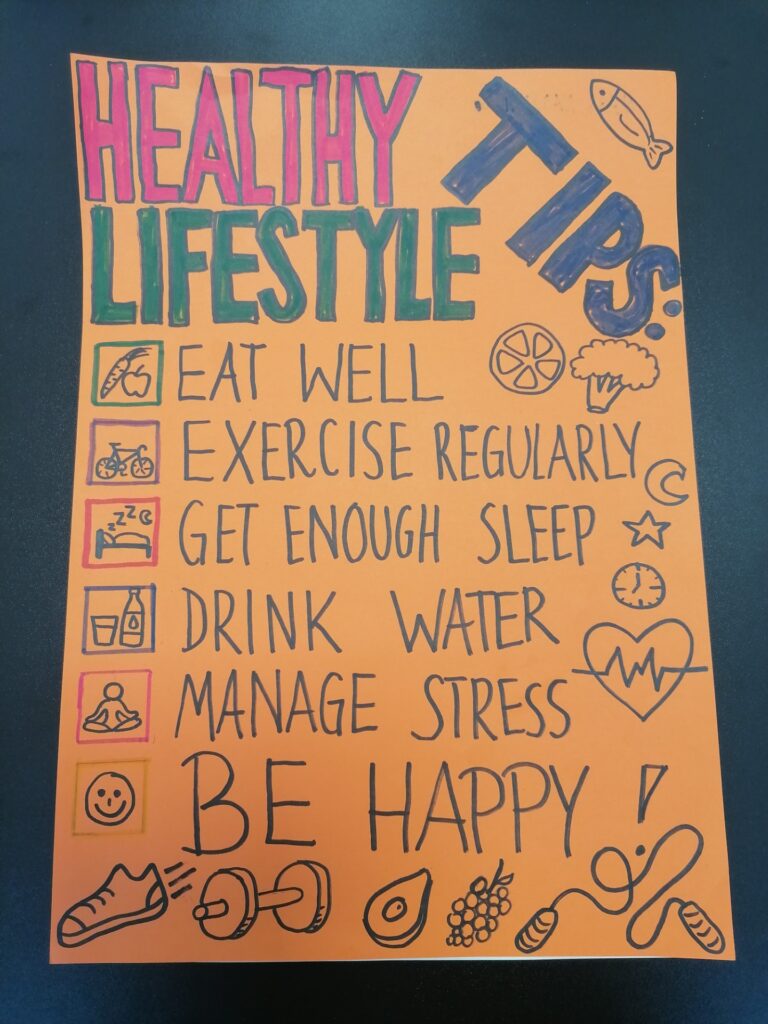 HEALTHY
LIFESTYLE
TIPS:
EAT WELL
EXERCISE REGULARLY
GET ENOUGH SLEEP
zzz
DRINK WATER
MANAGE STRESS
BE HAPPY!